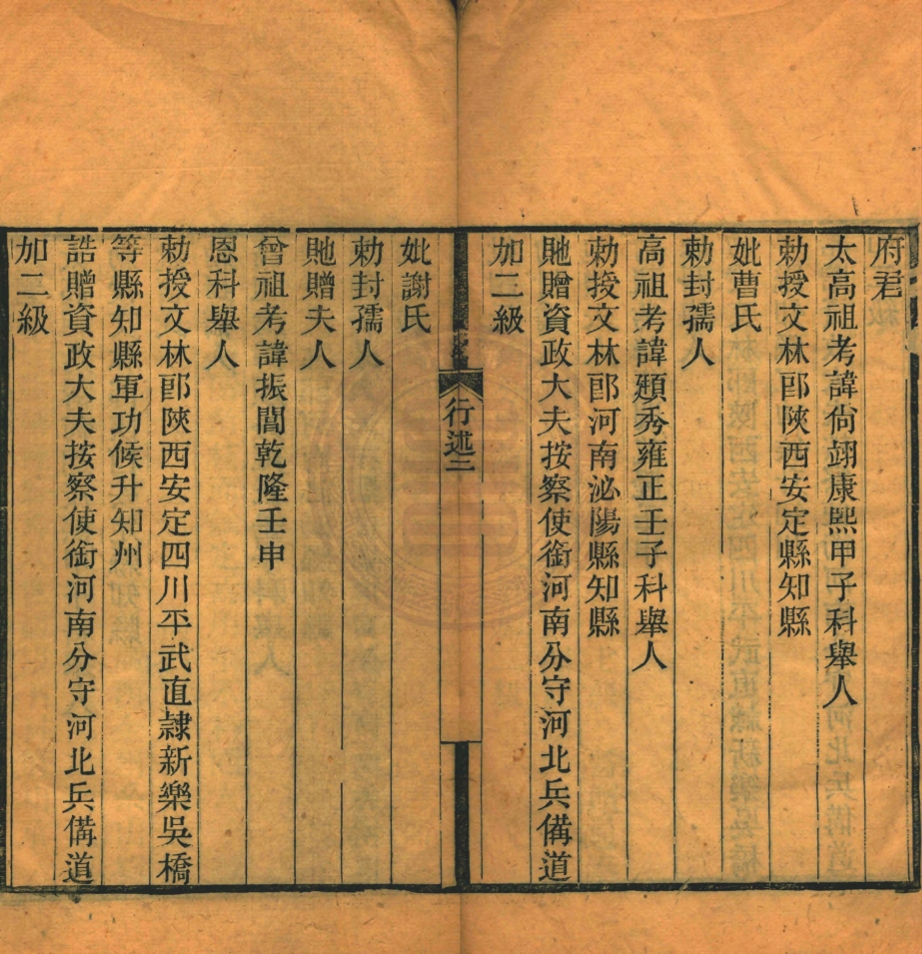 府君
太高祖考諱尙翊康熙甲子科舉人
勅授文林郎陝西安定縣知縣
妣曹氏
勅封孺人
高祖考諱頲秀雍正壬子科舉人
勅授文林郎河南泌陽縣知縣
貤贈資政大夫按察使銜河南分守河北兵備道
加二級
行述二
妣謝氏
勅封孺人
貤贈夫人
曾祖考諱振閶乾隆壬申
恩科舉人
勅授文林郎陝西安定四川平武直隸新樂吳橋
等縣知縣軍功候升知州
誥贈資政大夫按察使銜河南分守河北兵備道
加二級